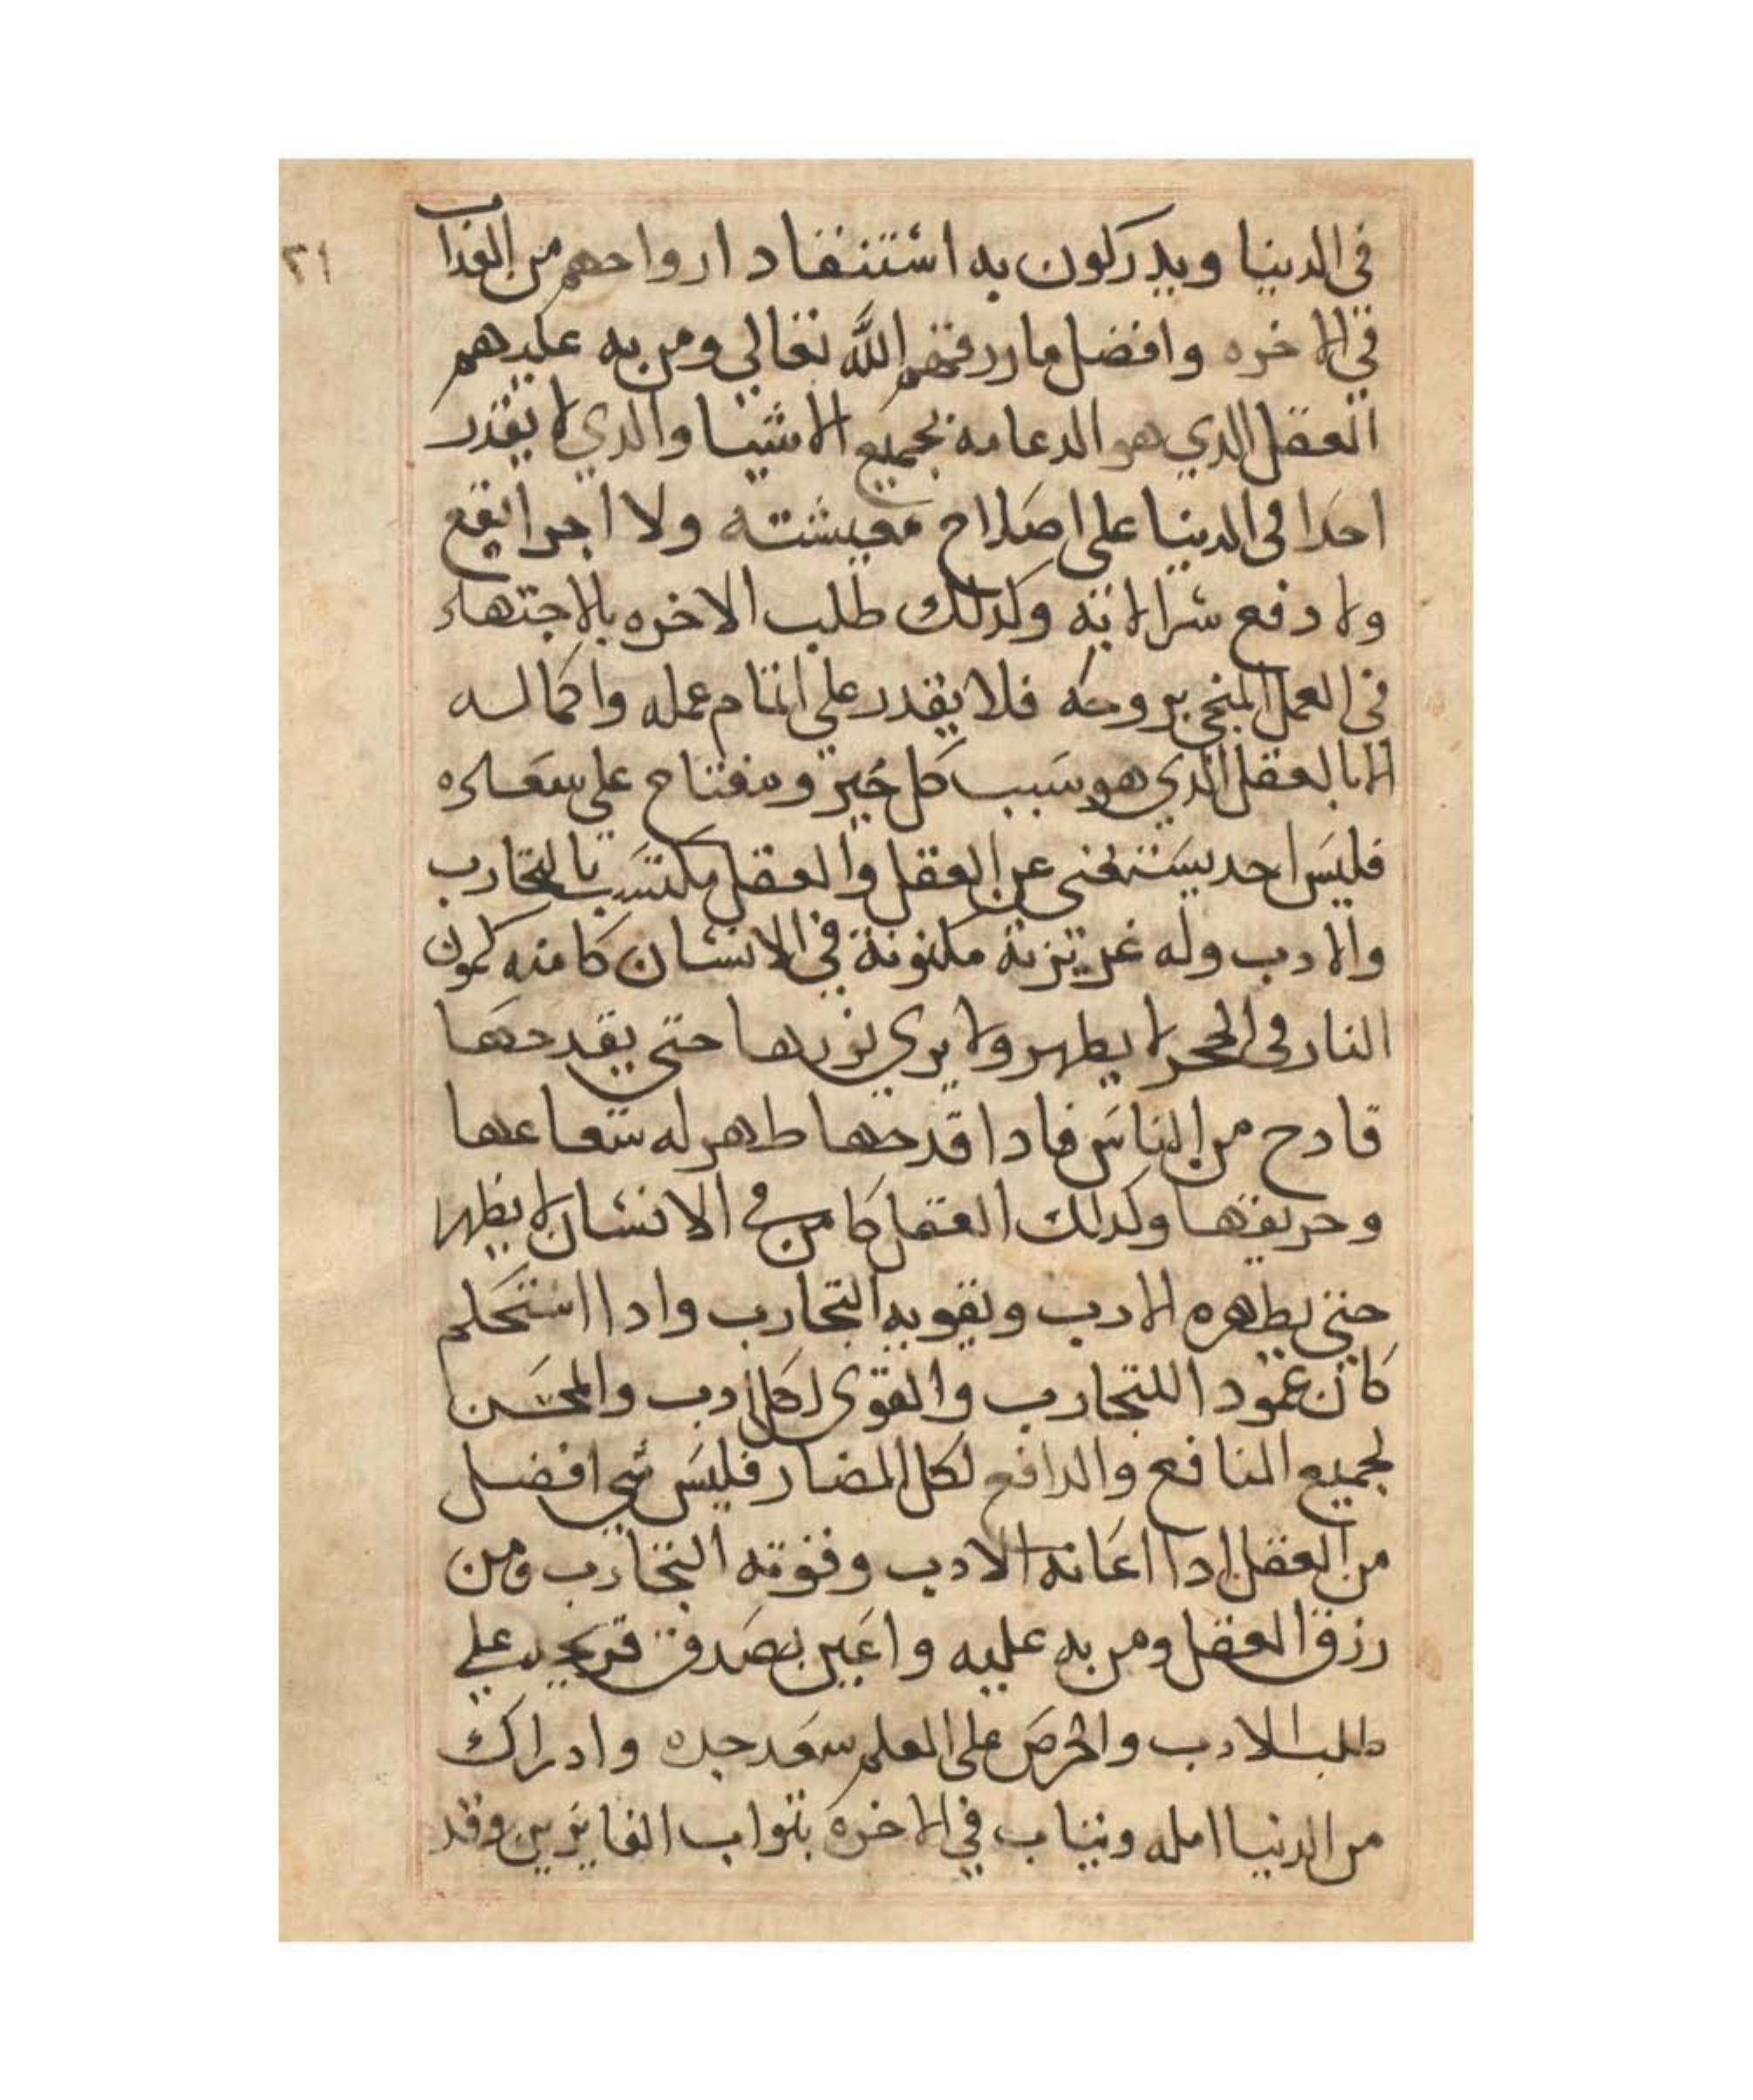 ٢١
في الدنيا ويدركون به استنفاد ارواحهم من العداب
في الاخره وافضل ما رزقهم الله تعالي ومن به عليهم
العقل الدي هو الدعامه لجميع الاشيا والدي لا يقدر
احدا في الدنيا علي اصلاح معيشته ولا اجرا يقع
ولا دفع شرا الا به وكدلك طلب الاخره بالاجتهاد
في العمل المنجي بروحه فلا يقدر علي اتمام عمله واكماله
الا بالعقل الدي هو سبب كل خير ومفتاح علي سعاده
فليس احد يستغني عن العقل والعقل مكتسب بالتجارب
والادب وله غريزة مكنونة في الانسان كامنه كمون
النار في الحجر لا يظهر ولا يري نورها حتي يقدحها
قادح من الناس فادا قدحها ظهر له شعاعها
وحريقها وكدلك العقل كامن في الانسان لا يظهر
حتي يظهره الادب وتقويه التجارب وادا استحكم
كان عمودا للتجارب والقوي لكل ادب والمحسن
لجميع المنافع والدافع لكل المضار فليس شي افضل
من العقل ادا اعانه الادب وقوته التجارب ومن
رزق العقل ومن به عليه واعين بصدق قريحته علي
طلب الادب والحرص علي العلم سعد جده وادراك
من الدنيا امله ويثاب في الاخره بثواب الفايزين وقد